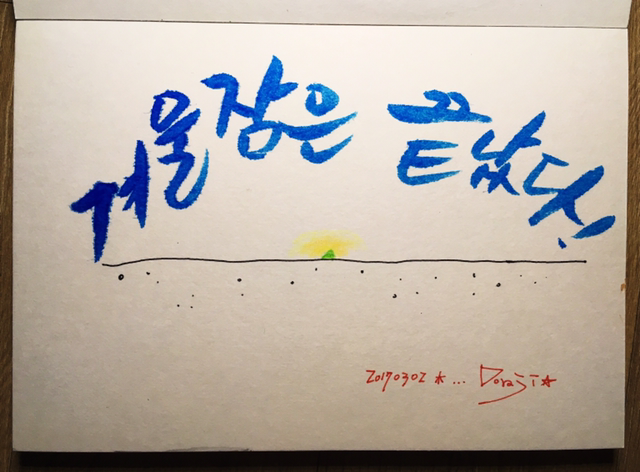 겨울잠은 끝났다!
20170302 * ... Doraji★